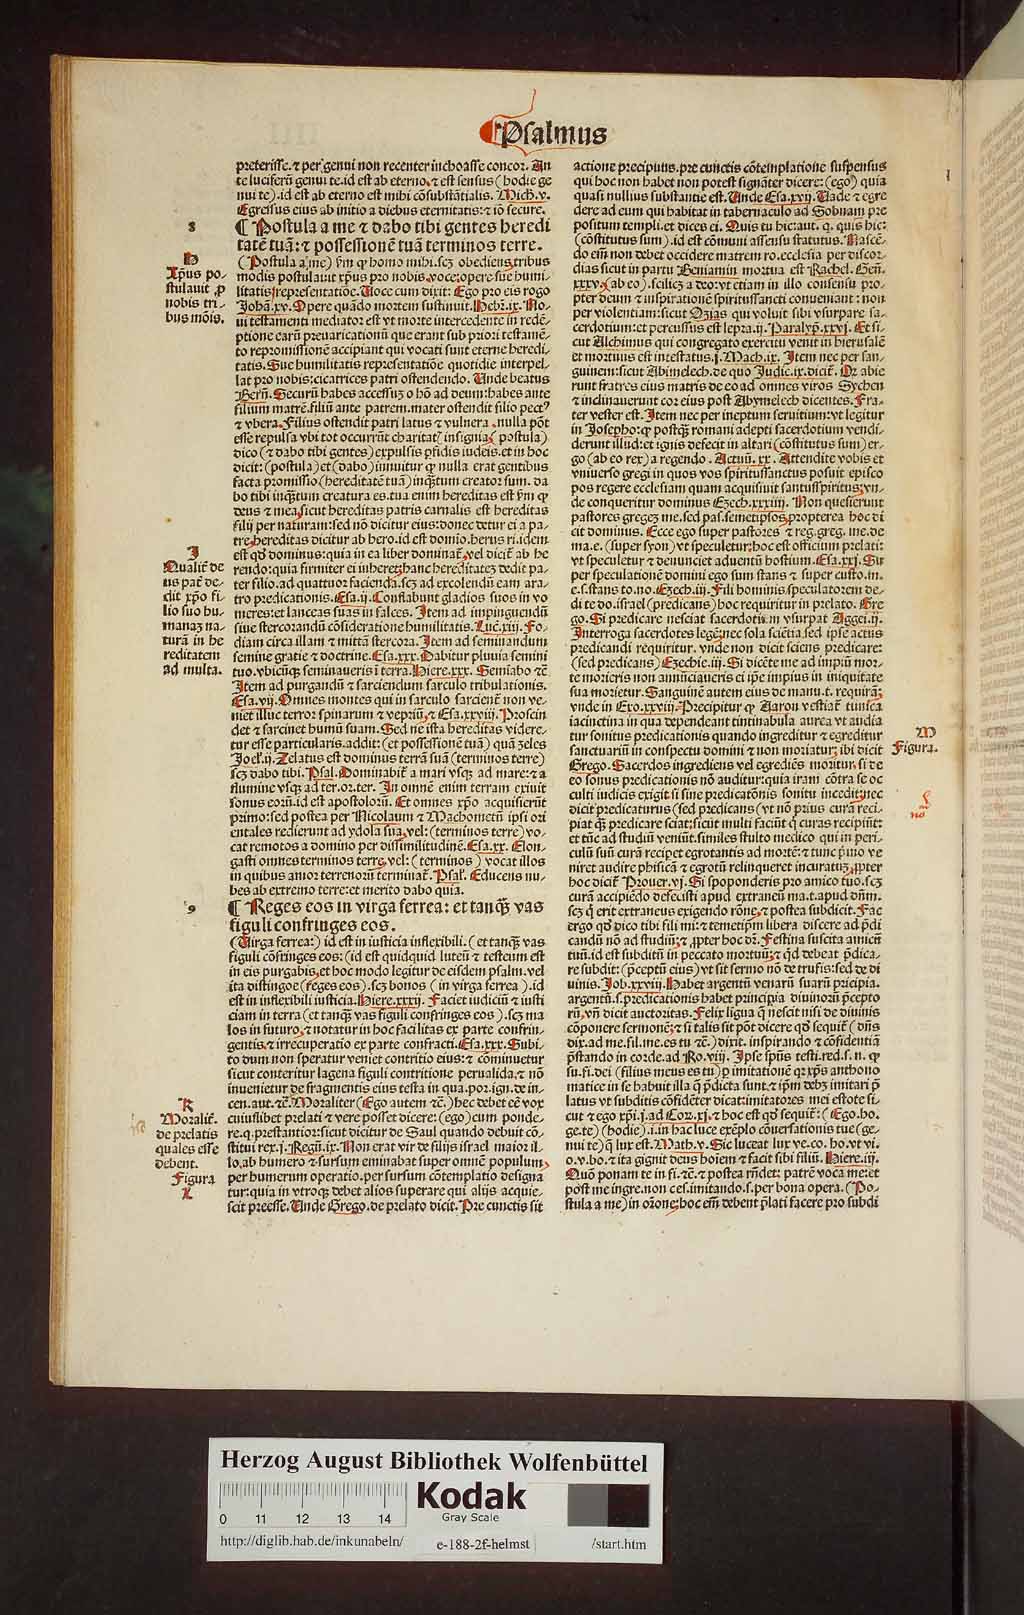 Psalmus
preterisse.⁊ per genui non recenter inchoasse concor. An
te luciferū genui te.id est ab eterno.⁊ est sensus (hodie ge
nui te).id est ab eterno est mihi cōsubstātialis. Mich.v.
Egressus eius ab initio a diebus eternitatis:⁊ iō secure.
8
¶ Postula a me ⁊ dabo tibi gentes heredi
tatē tuā: ⁊ possessionē tuā terminos terre.
H
Xp̄us po-
stulauit ,p
nobis tri-
bus mōis.
(Postula a me) p̄m ꝙ homo mihi.scꝫ obediens,tribus
modis postulauit xp̄us pro nobis.voce:opere sue humi
litatis representatiōe. Uoce cum dixit: Ego pro eis rogo
Johā.xv. Opere quādo mortem sustinuit. Hebr.ix. No-
ui testamenti mediator est vt morte intercedente in redē-
ptione earū preuaricationū que erant sub priori testamē-
to repromissionē accipiant qui vocati sunt eterne heredi-
tatis. Sue humilitatis representatiōe quotidie interpel-
lat pro nobis:cicatrices patri ostendendo. Unde beatus
Bern. Securū habes accessuꝫ o hō ad deum:habes ante
filium matrē.filiū ante patrem.mater ostendit filio pectꝰ
⁊ vbera. Filius ostendit patri latus ⁊ vulnera. nulla pōt
esse repulsa vbi tot occurrūt charitatꝭ insignia. (postula)
dico (⁊ dabo tibi gentes) expulsis p̄fidis iudeis.et in hoc
dicit: (postula) et (dabo) innuitur ꝙ nulla erat gentibus
facta promissio (hereditatē tuā) inqꝫtum creator sum. da
bo tibi inqꝫtum creatura es.tua enim hereditas est p̄m ꝙ
deus ⁊ mea,sicut hereditas patris carnalis est hereditas
filij per naturam:sed nō dicitur eius:donec detur ei a pa-
tre,hereditas dicitur ab hero.id est domio.herus ri.idem
J
Qualit̄ de
us pat̄ de-
dit xp̄o fi-
lio suo hu-
manaꝫ na-
turā in he
reditatem
ad multa.
est qd̄ dominus:quia in ea liber dominat̄,vel dicit̄ ab he
rendo:quia firmiter ei inheret,hanc hereditateꝫ dedit pa-
ter filio.ad quattuor facienda.scꝫ ad excolendū eam ara-
tro predicationis. Esa.ij. Conflabunt gladios suos in vo
meres:et lanceas suas in falces. Item ad impinguendū
siue stercorandū cōsideratione humilitatis. Luc̄.xiij. Fo-
diam circa illam ⁊ mittā stercora. Item ad seminandum
semine gratie ⁊ doctrine. Esa.xxx. Dabitur pluuia semini
tuo.vbicūqꝫ seminaueris ī terra. Hiere.xxx. Seminabo ⁊c̄
Item ad purgandū ⁊ sarciendum sarculo tribulationis.
Esa.vij. Omnes montes qui in sarculo sarcient̄ non ve-
niet illuc terror: spinarum ⁊ vepriū,⁊ Esa.xxviij. Proscin
det ⁊ sarciet humū suam. Sed ne ista hereditas videre-
tur esse particularis.addit: (et possessionē tuā) quā zeles
Joel.ij. Zelatus est dominus terrā suā (terminos terre)
scꝫ dabo tibi. Psal. Dominabit̄ a mari vsqꝫ ad mare:⁊ a
flumine vsqꝫ ad ter.or.ter. In omnē enim terram exiuit
sonus eorū.id est apostolorū. Et omnes xp̄o acquisierūt
primo:sed postea per Nicolaum ⁊ Machometū ipsi ori
entales redierunt ad ydola sua,vel: (terminos terre) vo-
cat remotos a domino per dissimilitudinē. Esa.xx. Elon-
gasti omnes terminos terre,vel: (terminos) vocat illos
in quibus amor terrenorū terminat̄. Psal. Educens nu-
bes ab extremo terre:et merito dabo quia.
9
¶ Reges eos in virga ferrea: et tanqꝫ vas
figuli confringes eos.
(Uirga ferrea:) id est in iusticia inflexibili. (et tanqꝫ vas
figuli cōfringes eos: (id est quidquid luteū ⁊ testeum est
in eis purgabis,et hoc modo legitur de eisdem psalm. vel
ita distingoe (reges eos).scꝫ bonos (in virga ferrea).id
est in inflexibili iusticia. Hiere.xxxij. Faciet iudiciū ⁊ iusti
ciam in terra (et tanqꝫ vas figuli confringes eos).scꝫ ma
los in futuro,⁊ notatur in hoc facilitas ex parte confrin-
gentis,⁊ irrecuperatio ex parte confracti. Esa.xxx. Subi-
to dum non speratur veniet contritio eius: ⁊ cōminuetur
sicut conteritur lagena figuli contritione perualida,⁊ nō
inuenietur de fragmentis eius testa in qua.por.ign.de in-
K
Moralit̄.
de prelatis
quales esse
debent.
Figura
L
cen.aut.⁊c̄. Moraliter (Ego autem ⁊c̄.) hec debet eē vox
cuiuslibet prelati ⁊ vere posset dicere: (ego) cum ponde-
re.q.prestantior:sicut dicitur de Saul quando debuit cō-
stitui rex.j. Regū.ix. Non erat vir de filijs israel maior il-
lo,ab humero ⁊ sursum eminabat super omnē populum,
per humerum operatio.per sursum cōtemplatio designa
tur:quia in vtroqꝫ debet alios superare qui alijs acquie-
scit preesse. Unde Grego.de prelato dicit. Pre cunctis sit
actione precipuus.pre cunctis cōtemplatione suspensus
qui hoc non habet non potest signāter dicere: (ego) quia
quasi nullius substantie est. Unde Esa.xxij. Uade ⁊ egre
dere ad eum qui habitat in tabernaculo ad Sobnam pre
positum templi.et dices ei. Quis tu hic:aut. q. quis hic:
(cōstitutus sum).id est cōmuni assensu statutus. Nascē-
do em̄ non debet occidere matrem ro.ecclesia per discor-
dias sicut in partu Beniamin mortua est Rachel. Gen̄.
xxxv. (ab eo).scilicꝫ a deo:vt etiam in illo consensu pro-
pter deum ⁊ inspirationē spiritussancti conueniant: non
per violentiam:sicut Ozias qui voluit sibi vsurpare sa-
cerdotium:et percussus est lepra.ij. Paralyp̄.xxvj. Et si-
cut Alchimus qui congregato exercitu venit in hierusalē
et mortuus est intestatus.j. Mach.ix. Item nec per san-
guinem:sicut Abimelech.de quo Judic.ix.dicit̄. Or abie
runt fratres eius matris de eo ad omnes viros Sychen
⁊ inclinauerunt cor eius post Abymelech dicentes. Fra-
ter vester est. Item nec per ineptum seruitium:vt legitur
in Josepho:ꝙ postqꝫ romani adepti sacerdotium vendi-
derunt illud:et ignis defecit in altari (cōstitutus sum) er-
go (ab eo rex) a regendo. Actuū.xx. Attendite vobis et
vniuerso gregi in quos vos spiritussanctus posuit episco
pos regere ecclesiam quam acquisiuit santusspiritus,vn-
de conqueritur dominus Ezech.xxxiiij. Non quesierunt
pastores gregeꝫ me.sed pas.semetipsos,propterea hoc di
cit dominus. Ecce ego super pastores ⁊ reg.greg.me.de
ma.e. (super syon) vt speculetur:hoc est officium prelati:
vt speculetur ⁊ denunciet aduentū hostium. Esa.xxj. Su
per speculationē domini ego sum stans ⁊ super custo.m.
e.s.stans to.no. Ezech.iij. Fili hominis speculatorem de-
di te do.israel (predicans) hoc requiritur in prelato. Gre
go. Si predicare nesciat sacerdotium vsurpat Aggei.ij.
Interroga sacerdotes legē,nec sola sciētia sed ipse actus
predicandi requiritur. vnde non dicit sciens predicare:
(sed predicans) Ezechie.iij. Si dicēte me ad impiū mor-
te morieris non annūciaueris ei ipse impius in iniquitate
sua morietur. Sanguinē autem eius de manu.t. requirā;
vnde in Exo.xxviij. Precipitur ꝙ Aaron vestiat̄ tunica
M
Figura.
iacinctina in qua dependeant tintinabula aurea vt audia
tur sonitus predicationis quando ingreditur ⁊ egreditur
sanctuariū in conspectu domini ⁊ non moriatur, ibi dicit
Grego. Sacerdos ingrediens vel egrediēs moritur,si de
eo sonus predicationis nō auditur:quia iram cōtra se oc
culti iudicis exigit si sine predicatōnis sonitu incedit,nec
nō
dicit predicaturus (sed predicans (vt nō prius curā reci-
piat qꝫ predicare sciat:sicut multi faciūt q̄ curas recipiūt:
et tūc ad studiū veniūt.similes stulto medico qui in peri-
culū suū curā recipet egrotantis ad mortē: ⁊ tunc p̄mo ve
niret audire phisicā ⁊ egrotū relinqueret incuratuꝫ,ꝓpter
hoc dicit̄ Prouer.vj. Si spoponderis pro amico tuo.scꝫ
curā accipiēdo defecisti apud extraneū ma.t.apud dn̄m.
scꝫ q̄ erit extraneus exigendo rōne,⁊ postea subdicit. Fac
ergo qd̄ dico tibi fili mi: ⁊ temetip̄m libera discere ad p̄di
candū nō ad studiū,⁊ ꝓpter hoc dr̄. Festina suscita amicū
tuū.id est subditū in peccato mortuū,⁊ qd̄ debeat p̄dica-
re subdit: (p̄ceptū eius) vt sit sermo nō de trufis:sed de di
uinis. Job.xxviij. Habet argentū venarū suarū pricipia.
argentū.s.predicationis habet principia diuinorū p̄cepto
rū,vn̄ dicit auctoritas. Felix ligua q̄ nescit nisi de diuinis
cōponere sermonē,⁊ si talis sit pōt dicere qd̄ sequit̄ (dn̄s
dix.ad me.fil.me.es tu ⁊c̄.) dixit. inspirando ⁊ cōfidentiā
p̄stando in corde.ad Ro.viij. Ipse sp̄us testi.red.s.n. ꝙ
su.fi.dei (filius meus es tu) p̄ imitationē qꝛ xp̄s anthono
matice in se habuit illa q̄ p̄dicta sunt,⁊ ip̄m debꝫ imitari p̄
latus vt subditis cōfidēter dicat:imitatores mei estote si-
cut ⁊ ego xp̄i.j.ad Cor.xj.⁊ hoc est qd̄ sequit̄: (Ego.ho.
ge.te) (hodie).i.in hac luce exēplo cōuersationis tue (ge-
nui te) q̄ lux est. Math.v. Sic luceat lux ve.co.ho.vt vi.
o.v.bo.⁊ ita gignit deus hoiem ⁊ facit sibi filiū. Hiere.iij.
Quō ponam te in fi.⁊c̄.⁊ postea rn̄det: patrē voca me:et
post me ingre.non ces.imitando.s.per bona opera. (Po-
stula a me) in or̄one,hoc em̄ debent p̄lati facere pro subdi
Herzog August Bibliothek Wolfenbüttel
0 11 12 13 14
Kodak
Gray Scale
http://diglib.hab.de/inkunabeln/ e-188-2f-helmst /start.htm